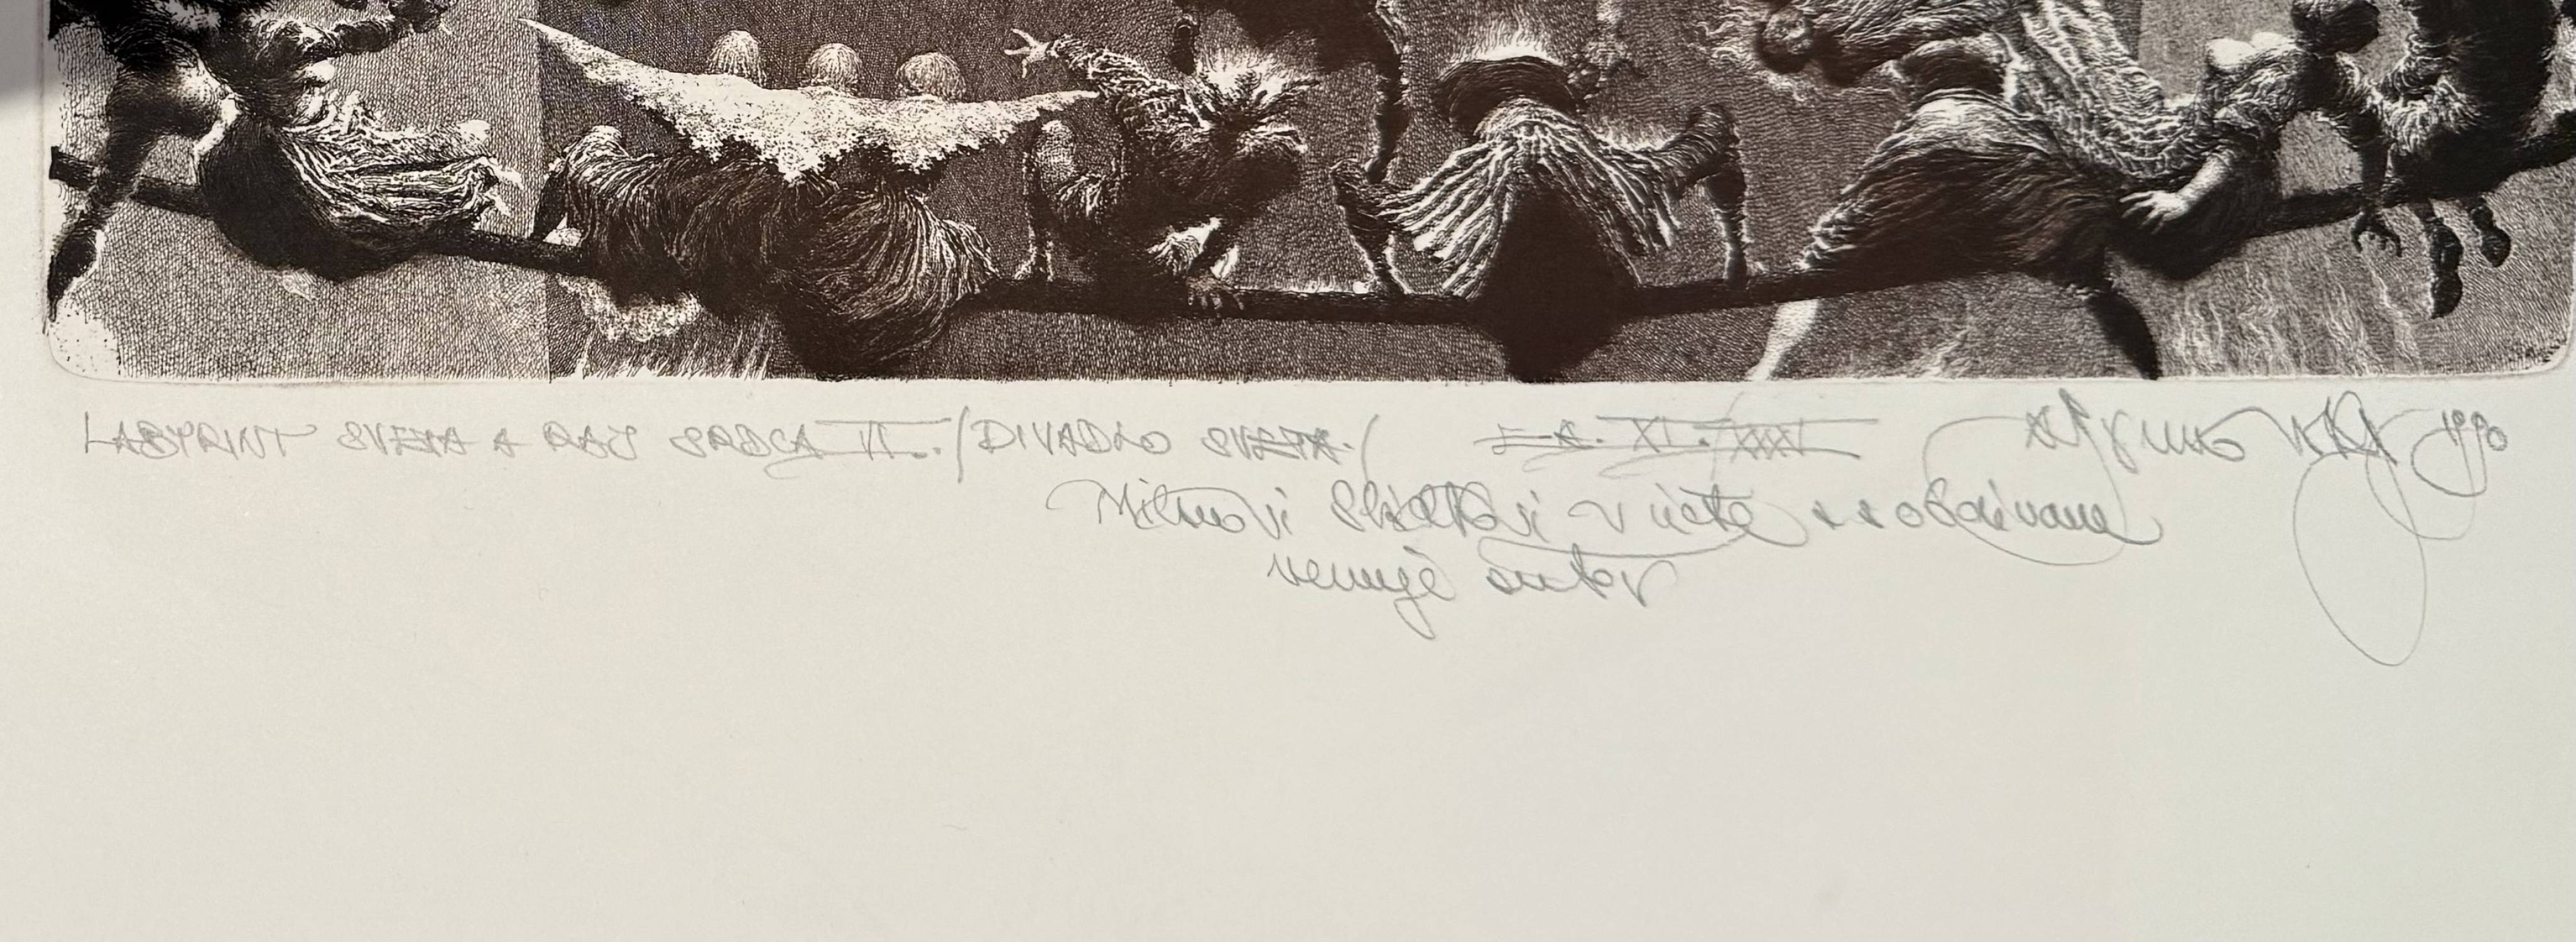 LABYRINT SVETA A RAJ SRDCA VI. /DIVADLO SVETA./ E.A. XI./XXXV 1990
Milanovi v úcte a s obdivom
venuje autor